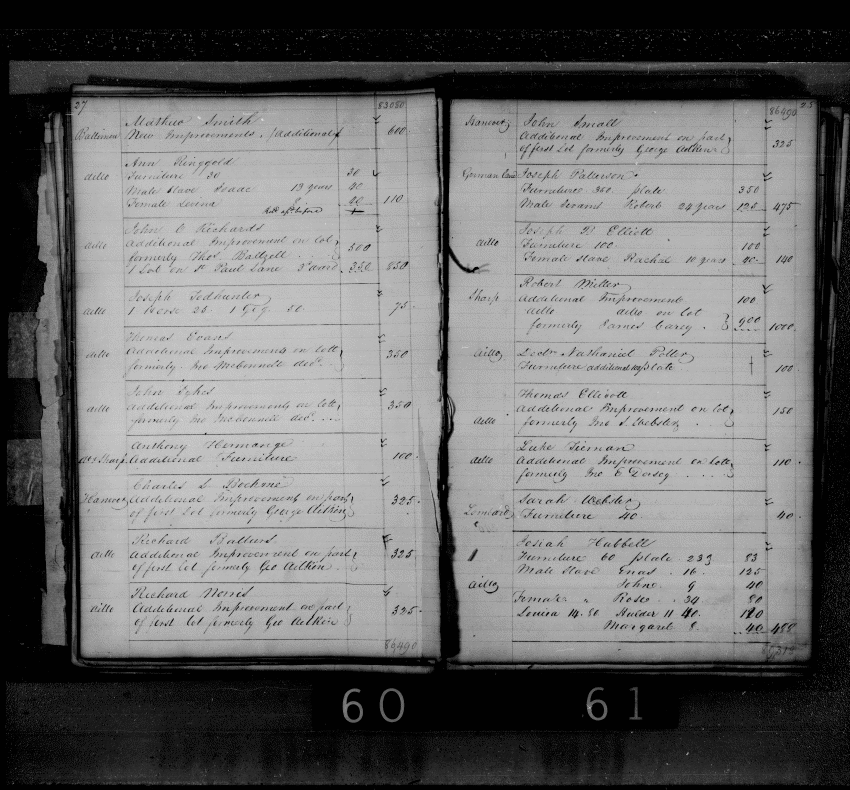 27 83080
Mathew Smith
Baltimore New Improvements, (additional) 600
Ann Ringgold
ditto Furniture 30 30
Male Slave Isaac 13 years 40
Female Levina 40 110
John C Richards
ditto Additional Improvement on lot
formerly Thos. Baltzell 500
1 Lot on St Paul Lane 350 850
Joseph Todhunter
ditto 1 Horse 25. 1 Gig 50. 75
Thomas Evans
ditto Additional Improvements on lott
formerly Jno McConnell decd. 350
John Sykes
ditto Additional Improvements on lott
formerly Jno McConnell decd. 350
Anthony Hermange
Sharp Additional Furniture 100
Charles L Boehme
Hanover Additional Improvement on part
of first Lot formerly George Aitkin 325
Richard Batturs
ditto Additional Improvement on part
of first lot formerly Geo Aitkin 325
Richard Norris
ditto Additional Improvement on part
of first lot formerly Geo Aitkin 325
86490
86490
Hanover John Small
Additional Improvement on part
of first Lot formerly George Aitkin 325
German lane Joseph Patterson
Furniture 350 plate 350
Male Robert 24 years 125 475
Joseph B Elliott
ditto Furniture 100 100
Female Slave Rachel 10 years 40 140
Robert Miller
Sharp Additional Improvement 100
ditto ditto on lot
formerly James Carey 900 1000
ditto Doctr Nathaniel Potter
Furniture additional plate 100
Thomas Ellicott
Additional Improvement on lot
ditto formerly Jno S Webster 150
Luke Tiernan
ditto Additional Improvement on lott
formerly Jno E Dorsey 110
Sarah Webster
Lombard Furniture 40 40
Josiah Hubbell
Furniture 60 plate 23 83
Male Slave Enos 16 125
ditto John 9 40
Female " Rose 34 80
Louisa 14. 80 Hulder 11 40. 120
Margaret 8 40 488
60
61